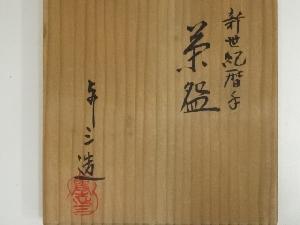 新世紀暦手
茶盌
与三造